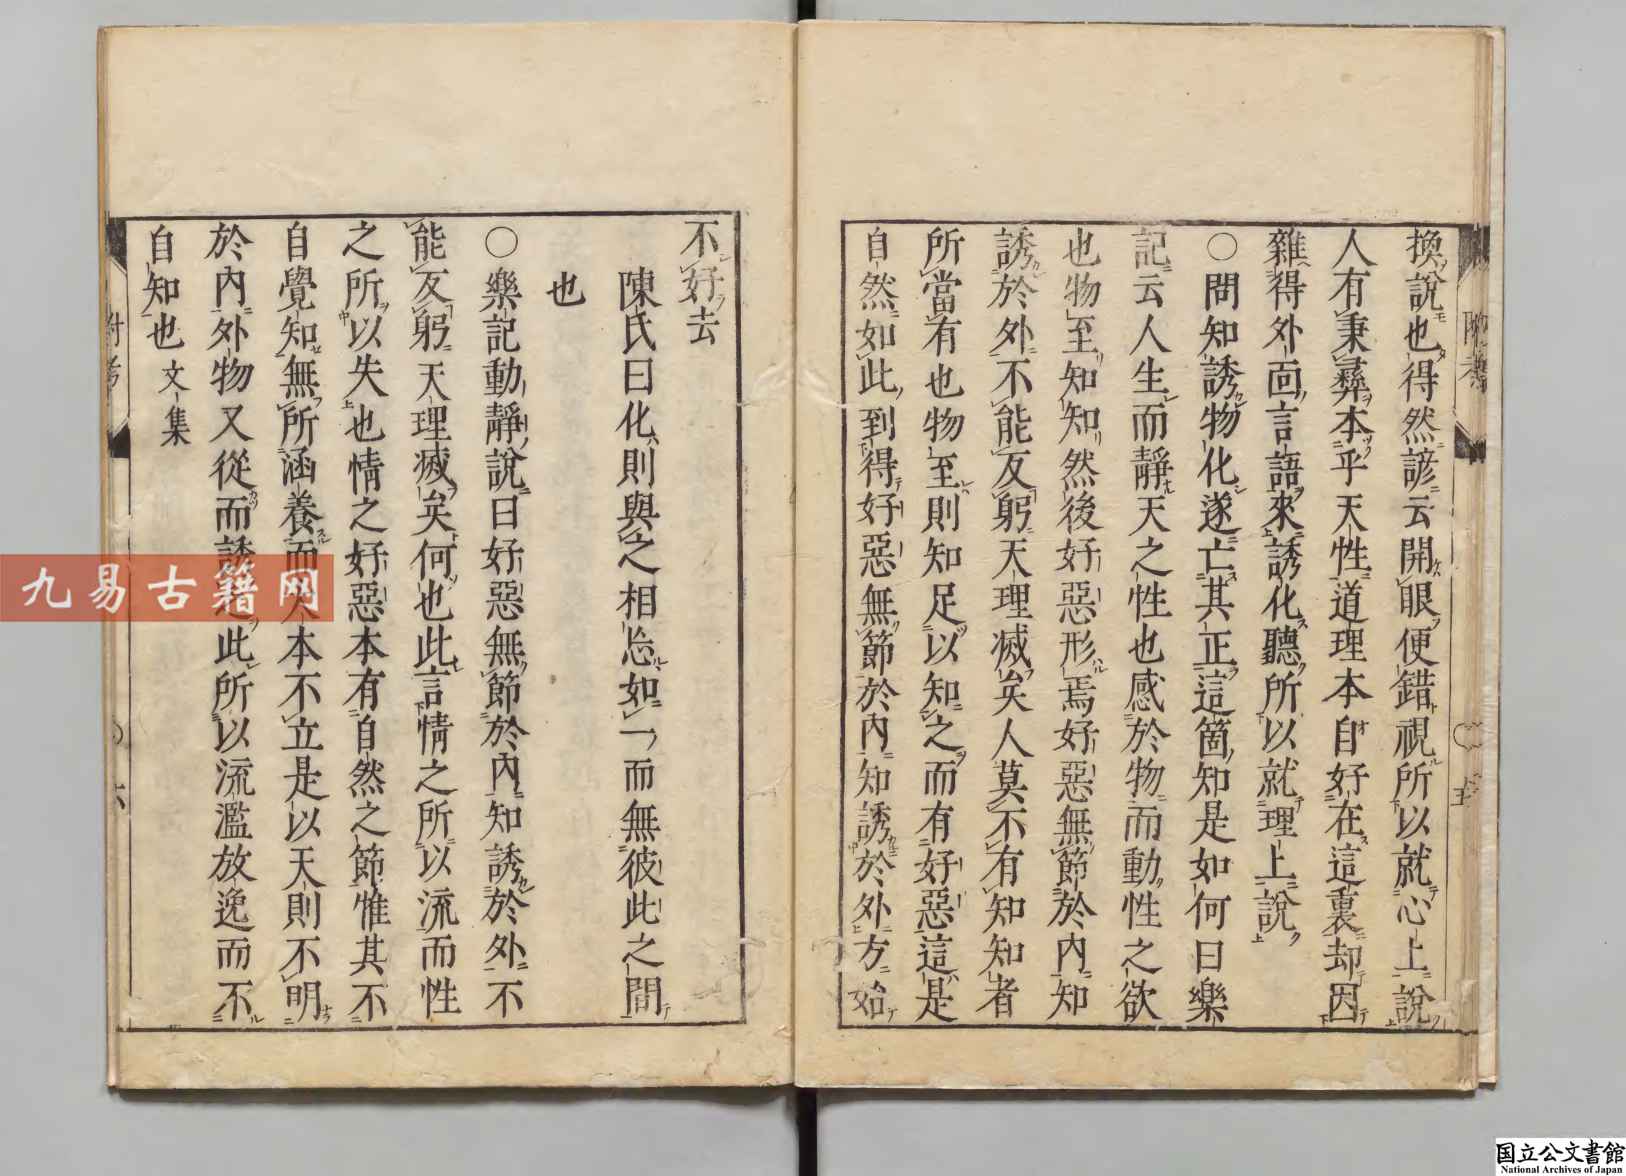 換說也得然諺云開眼便錯視所以就心上說
人有秉彝本乎天性道理本自好在這裏却因
雜得外面言語來誘化聽所以就理上說
○問知誘物化遂亡其正這箇知是如何曰樂
記云人生而靜天之性也感於物而動性之欲
也物至知知然後好惡形焉好惡無節於內知
誘於外不能反躬天理滅矣人莫不有知知者
所當有也物至則知足以知之而有好惡這是
自然如此到得好惡無節於內知誘於外方始
附考
五
不好去
陳氏曰化則與之相忘如一而無彼此之間
也
○樂記動靜說曰好惡無節於內知誘於外不
能反躬天理滅矣何也此言情之所以流而性
之所以失也情之好惡本有自然之節惟其不
自覺知無所涵養而大本不立是以天則不明
於內外物又從而誘之此所以流濫放逸而不
自知也文集
附考
六
九易古籍网
国立公文書館
National Archives of Japan